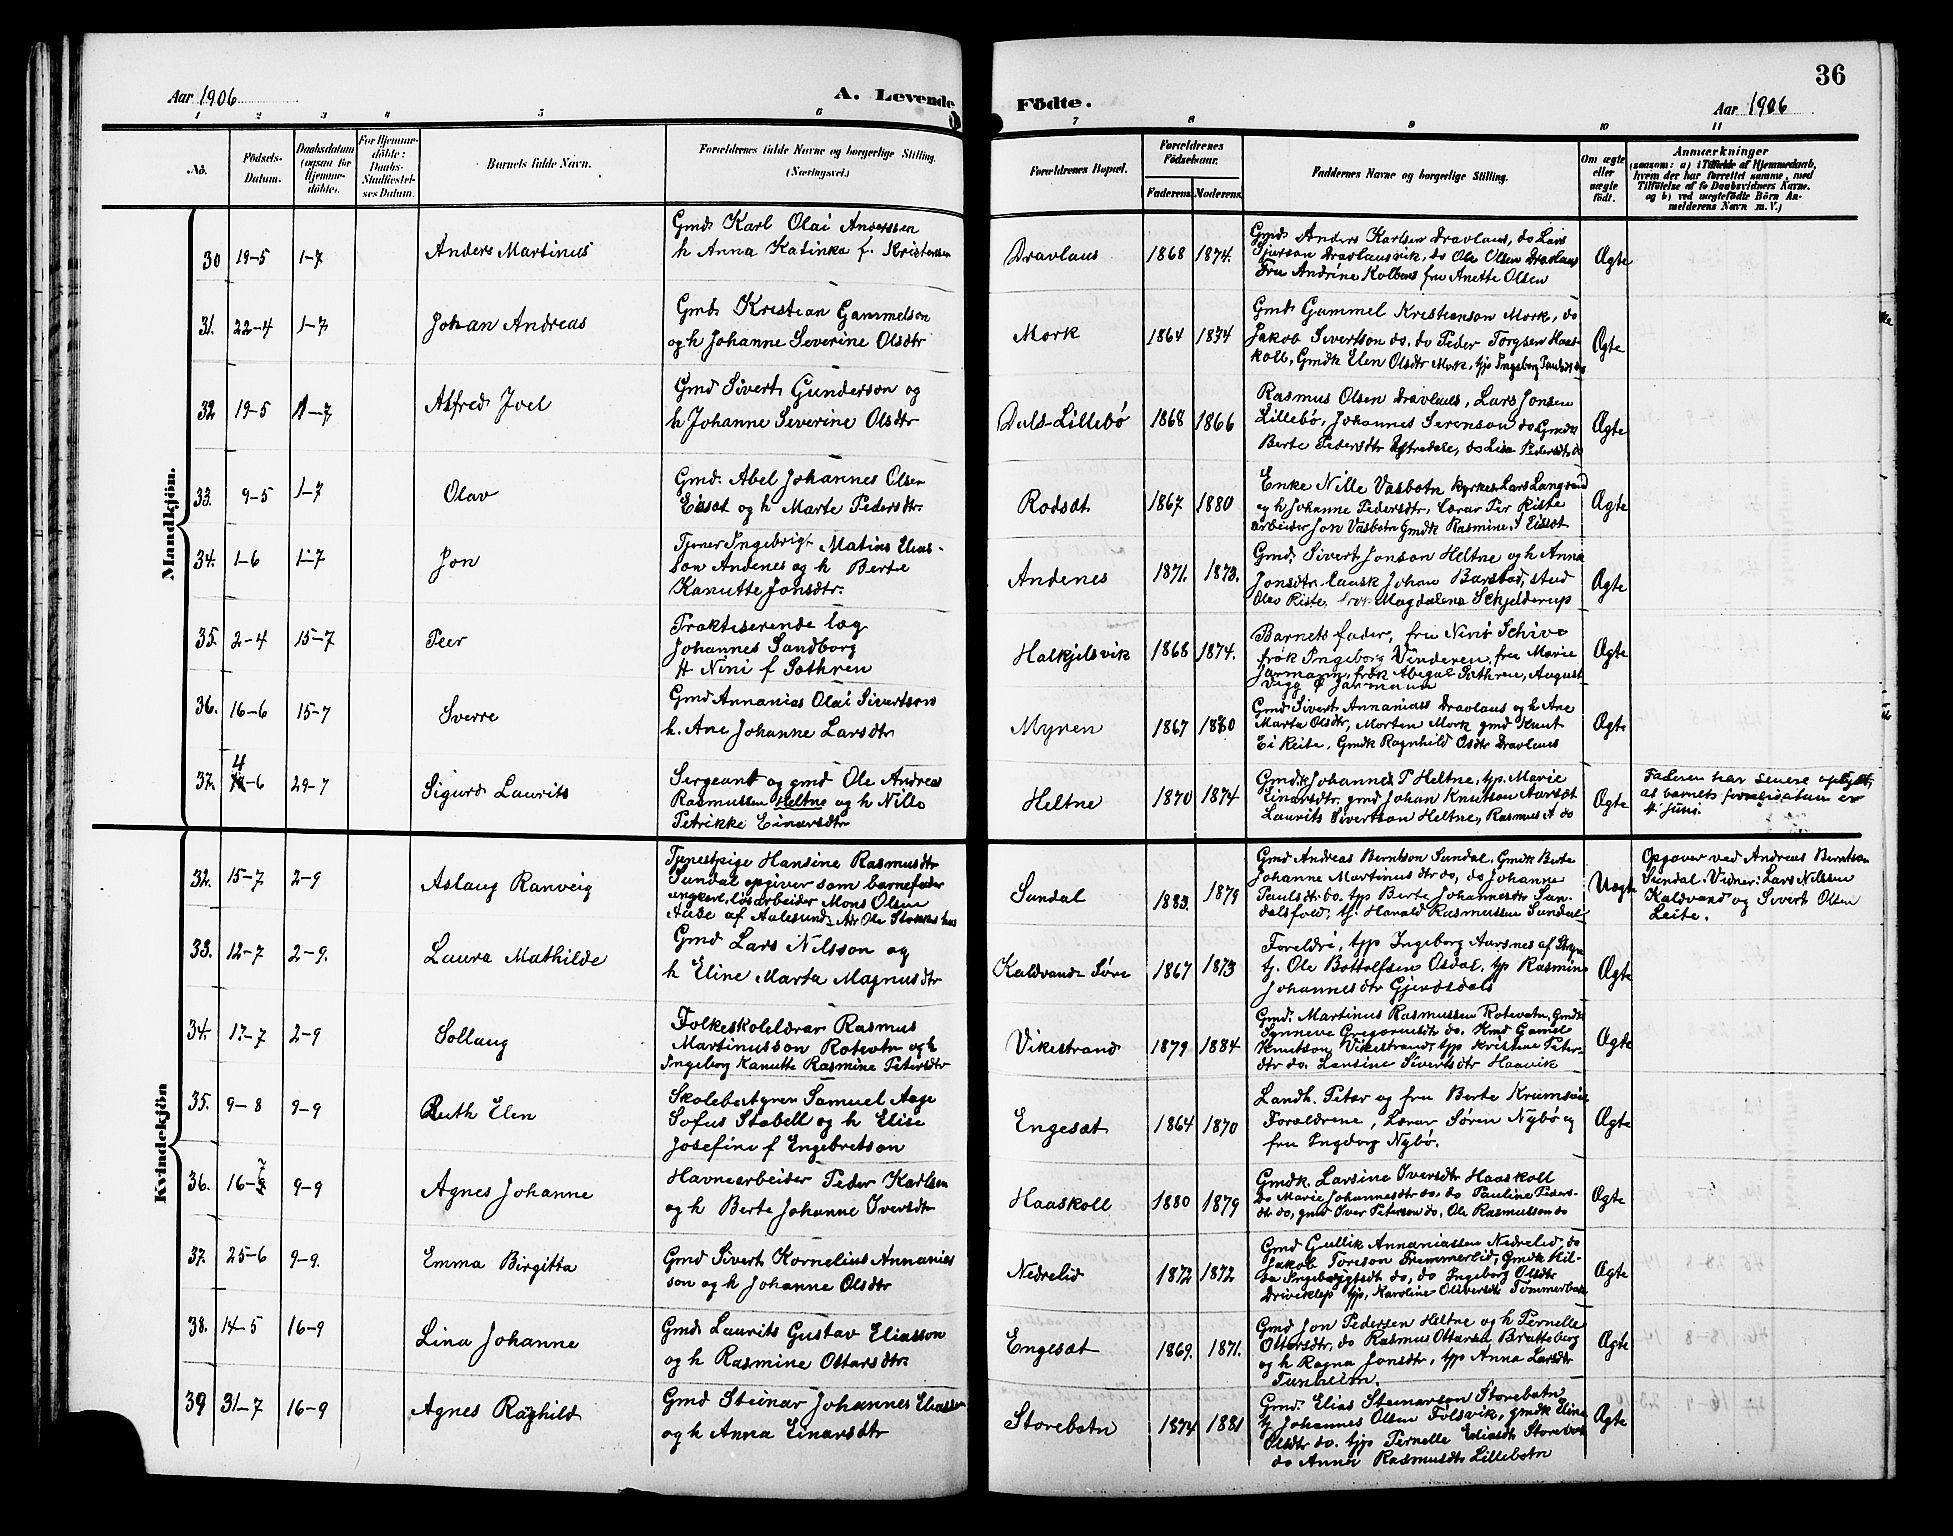 Aar 1906
A. Levende Födte.
36
Aar 1906
1 2 3 4 5 6 7 8 9 10 11
No.
Födsels-Datum.
Daabsdatum (ogsaa for Hjemmedöbte).
For Hjemmedöbte: Daabs-Stadfæstelses Datum.
Barnets fulde Navn.
Forældrenes fulde Navne og borgerlige Stilling. (Næringsvei.)
Forældrenes Bopæl.
Forældrenes Födselsaar.
Faderens. Moderens.
Faddernes Navne og borgerlige Stilling.
Om ægte eller uægte födt.
Anmærkninger
(saasom: a) i Tilfælde af Hjemmedaab,
hvem der har forrettet samme, med
Tilföielse af to Daabsvidners Navne.
og b) ved uægtefödte Börn An-
melderens Navn m. V.)
Mandkjön.
30 19-5 1-7 Anders Martinus
Gmd. Karl Olai Anderssen
h Anna Katinka f. Kristensen
Dravlaus 1868 1874.
Gmd. Anders Karlsen Dravlaus, do Lars
Dravlausvik, do Ole Olsen Dravlaus
Fru Andrine Kolbens fru Anette Olsen
Ægte
31. 22-4 1-7 Johan Andreas
Gmd. Kristian Gammelson
og h Johanne Severine Olsdtr
Mork 1864 1874
Gmd. Gammel Kristianson Mork, do
Jakob Sivertson do. do Peder Torgsen Haas-
koll, Gmdk Elen Olsdtr Mork, tjp Ingeborg do
Ægte
32. 19-5 1-7 Alfred Joel
Gmd Sivert Gunderson og
h Johanne Severine Olsdtr
Dals-Lillebø 1868 1866
Rasmus Olsen Dravlaus, Lars Jonsen
Lillebø, Johannes Serenson do Gmdk
Berte Pedersdtr Ystredale, do Lisa Pedersdtr do
Ægte
33. 9-5 1-7 Olav
Gmd. Abel Johannes Olsen
Eiset og h Marte Pedersdtr.
Rodsæt 1867 1880
Enke Nille Vasbotn kyrkes. Lars Langsand
og h Johanne Pedersdtr, Lærar Per Riste
arbeider Jon Vasbotn Gmdk Rasmine Eissæt
Ægte
34. 1-6 1-7 Jon
Tjener Ingebrigt Matius Elias-
son Andenes og h Berte
Kanutte Jonsdtr.
Andenes 1871. 1873.
Gmd. Sivert Jonson Heltne og h Anna
Jonsdtr. Johan Barstad, stud
Olav Riste, Magdalena Schjelderup
Ægte
35. 2-4 15-7 Peer
Praktiserende læg
Johannes Sandborg
H Nini f Sothren
Halkjelsvik 1868 1874.
Barnets fader, fru Nini Schive
frøk Ingeborg Vinderen, fru Marie
Jarmann, frøk Abigal Sothren, August
Vigg Ø Jarmann
Ægte
36. 16-6 15-7 Sverre
Gmd. Annanias Olai Sivertson
h. Ane Johanne Larsdtr
Myren 1867 1870
Gmd. Sivert Annaniass Dravlaus og h Ane
Marta Olsdtr, Morten Mork gmd Knut
Ei Reite, Gmdk Ragnhild Osdtr Dravlaus
Ægte
37. 4-6 29-7 Sigurd Laurits
Sergeant og gmd Ole Andreas
Rasmussen Heltne og h Nille
Petrikke Einarsdtr
Heltne 1870 1874
Gmdk Johanne P Heltne, tjp. Marie
Einarsdtr. gmd Johan Knutson Aarsæt
Laurits Sivertson Heltne, Rasmus A do
Ægte
Faderen har senere oplyst,
at barnets fødselsdatum er
4' juni.
Kvindekjön
32. 15-7 2-9 Aslaug Ranveig
Tjenestpige Hansine Rasmusdtr
Sundal opgiver som barnefader
ungkarl, løsarbeider Mons Olsen
Aade af Aalesund.
Sundal 1883. 1879
Gmd Andreas Berntson Sundal. Gmdk Berte
Johanne Martinusdtr do, do Johanne
Paulsdtr do. tjp Berte Johannesdtr Sun-
dalsfold, tj. Harald Rasmussen Sundal
Uægte
Opgaver ved Andreas Berntson
Sundal. Vidner: Lars Nilssen
Kaldvand og Sivert Olsen
Leite.
33. 12-7 2-9. Laura Mathilde
Gmd Lars Nilsson og
h Eline Marta Magnusdtr
Kaldvand-Søre 1867 1873
Foreldri, tjp Ingeborg Aarsnes af Stryn
tj. Ole Bottolfsen Osdal, tjp Rasmine
Johannesdtr Gjerdsdals
Ægte
34. 17-7 2-9 Sollaug
Folkeskolelærar Rasmus
Martinusson Rotevtn og h
Ingeborg Kanutte Rasmine Petersdtr
Vikestrand 1879 1884
Gmd. Martinus Rasmussen Rotevatn, Gmdk
Synneve Gregoriusdtr do. Kmd Gamel
Knutson Vikestrand, tjp Kristine Peter-
dtr do. Lansine Sivertsdtr Haavik
Ægte
35. 9-8 9-9 Ruth Elen
Skolebestyrer Samuel Aage
Sofus Stabell og h Elise
Josefine f Engebretson
Engesæt 1864 1870
Landh. Peter og fru Berte Krumsvik
Forældrene, Lærar Søren Nybø og
fru Ingeborg Nybø.
Ægte
36. 16-7 9-9 Agnes Johanne
Havnearbeider Peder Karlsen
og h Berte Johanne Iversdtr
Haaskoll 1880 1879
Gmdk. Larsine Iversdtr Haaskoll
do Marie Johannesdtr do. do Pauline Peders-
dtr do, gmd Iver Peterson do, Ole Rasmusson do
Ægte
37. 25-6 9-9. Emma Birgitta
Gmd Sivert Kornelius Annanias
son og h Johanne Olsdtr
Nedrelid 1872 1872
Gmd Gullik Annaniassen Nedrelid, do
Jakob Toreson Fremmerlid, Gmdk Hil-
da Ingebrigtsdt do, do Ingeborg Olsdtr
Driveklep tjp, Karoline Olsversdtr Tommerbak
Ægte
38. 14-5 16-9 Lina Johanne
Gmd. Laurits Gustav Eliasson
og h Rasmine Ottarsdtr.
Engesæt 1869. 1871.
Gmd Jon Pedersen Heltne og h Pernelle
Ottarsdtr, do Rasmus Ottarsen Bratteberg
og h Ragna Jonsdtr, tjp Anna Larsdtr
Tunheim.
Ægte
39 31-7 16-9 Agnes Raghild
Gmd Steinar Johannes Eliasson
og h Anna Einarsdtr
Storebotn 1874 1881
Gmd. Elias Steinarson Storebotn
tj Johannes Olsen Folsvik, gmdk Elina
Olsdtr do. tjp Pernelle Eliasdt Storebotn
do Anna Rasmusdtr Lillebotn
Ægte